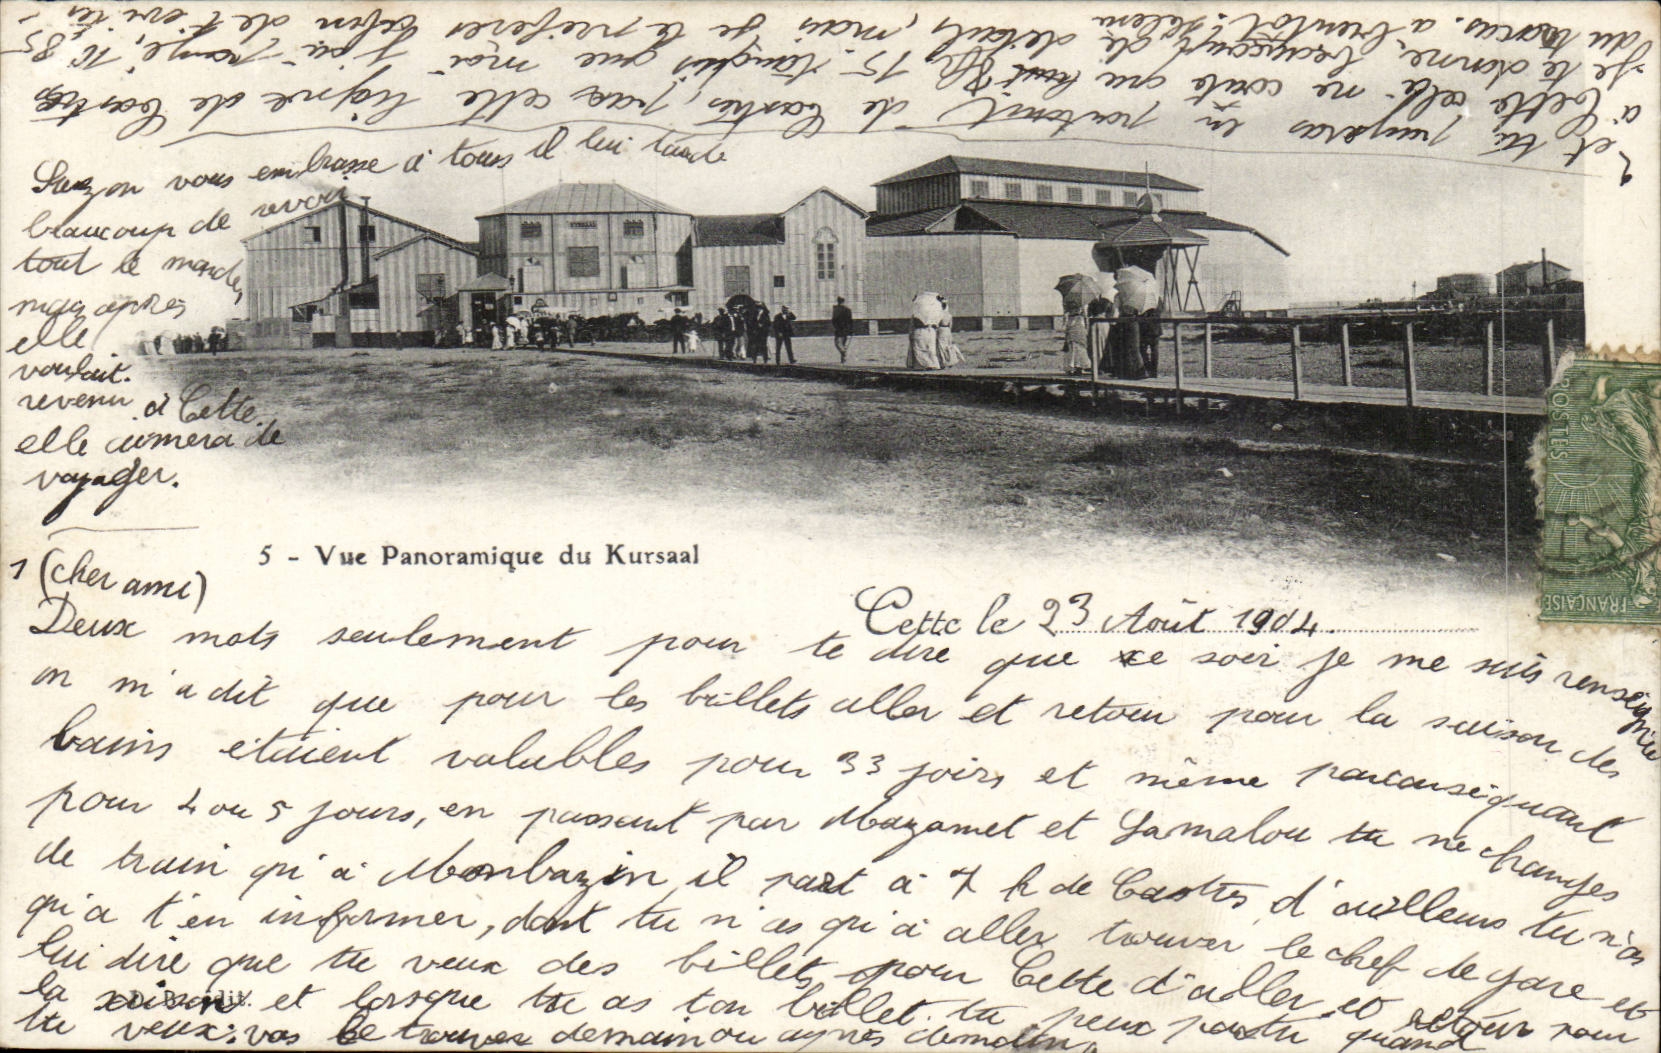 5 - Vue Panoramique du Kursaal
Cette le 23 Août 1904.
1 (cher ami)
Deux mots seulement pour te dire que ce soir je me suis renseigné
on m'a dit que pour les billets aller et retour pour la saison des
bains etaient valables pour 33 joirs et même par conséiquant
pour 4 ou 5 jours, en passant par Mazamet et Lamalou tu ne changes
de train qu'à Monbazin il part à 7 h de Castres d'ailleurs tu n'as
qu'a t'en informer, dont tu n'as qu'à aller trouver le chef de gare et
lui dire que tu veux des billets pour Cette d'aller et retour pour
la saison et lorsque tu as ton billet tu peux partir quand
tu veux: vas le trouver demain ou après demain,
2 et tu
en partant de Castres, par cette ligne de Castres
à Cette cela ne coute que
15 tandis que moi j'ai 16,85
Je te donne beaucoup de détails, mais je le préfère
du tracas. a bientot:
Suzon vous embrasse à tous Il lui tarde
beaucoup de revoir
tout le monde,
mais après
elle
voulait.
revenu à Cette
elle aimera de
voyager.
KURSAAL
POSTES
FRANÇAISE